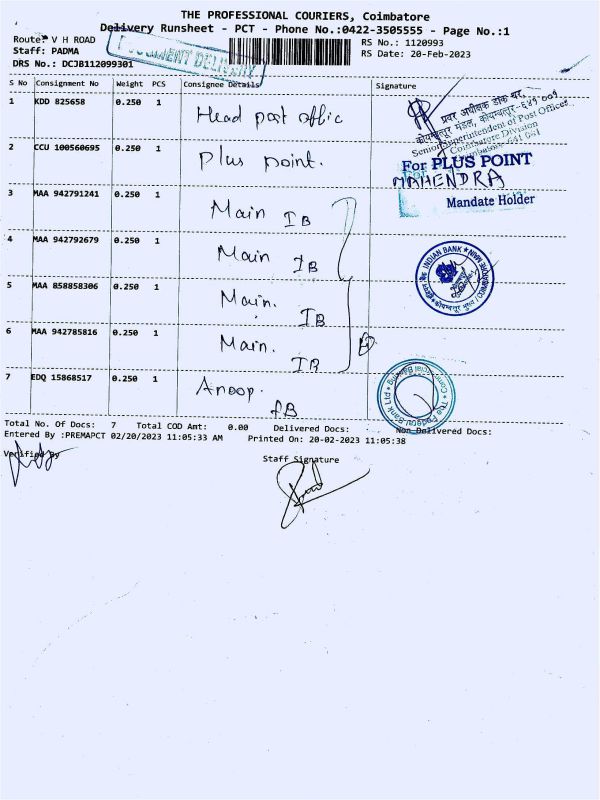 THE PROFESSIONAL COURIERS, Coimbatore
Delivery Runsheet - PCT - Phone No.:0422-3505555 - Page No.:1
Route: V H ROAD
RS No.: 1120993
Staff: PADMA
RS Date: 20-Feb-2023
DRS No.: DCJB112099301
DOCUMENT DELIVERY
S No Consignment No Weight PCS Consignee Details Signature
1 KDD 825658 0.250 1 Head post office
प्रवर अधीक्षक डाक घर,
कोयम्बत्तूर मंडल, कोयम्बत्तूर-६४१ ००१
Senior Superintendent of Post Offices
Coimbatore Division
Coimbatore 641 001
2 CCU 100560695 0.250 1 Plus point.
For PLUS POINT
MAHENDRA
Mandate Holder
3 MAA 942791241 0.250 1 Main IB
4 MAA 942792679 0.250 1 Main IB
INDIAN BANK
5 MAA 858858306 0.250 1 Main. IB
6 MAA 942785816 0.250 1 Main. IB
7 EDQ 15868517 0.250 1 Anoop. FB
The Federal Bank Ltd
Total No. Of Docs: 7 Total COD Amt: 0.00 Delivered Docs: Non Delivered Docs:
Entered By :PREMAPCT 02/20/2023 11:05:33 AM Printed On: 20-02-2023 11:05:38
Verified By
Staff Signature